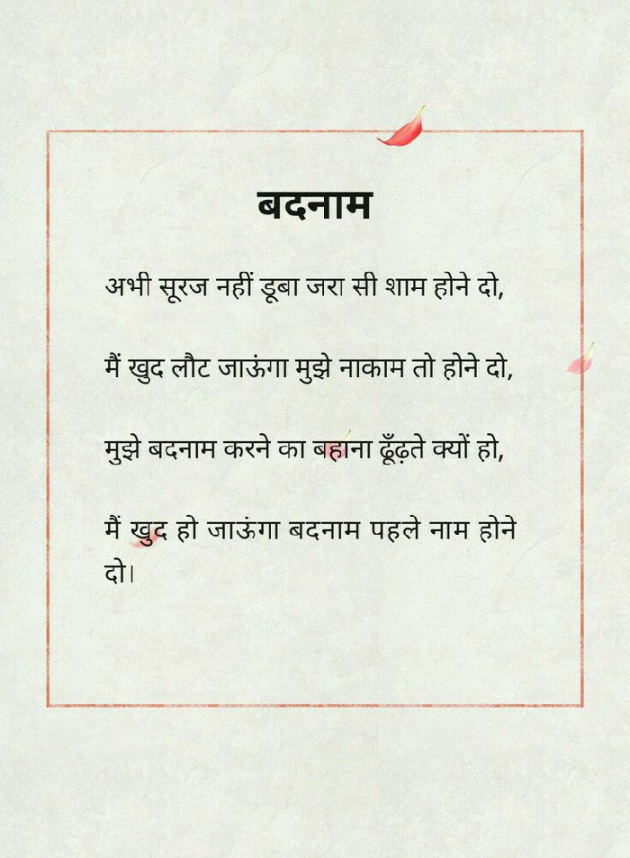 बदनाम
अभी सूरज नहीं डूबा जरा सी शाम होने दो,
मैं खुद लौट जाऊंगा मुझे नाकाम तो होने दो,
मुझे बदनाम करने का बहाना ढूँढ़ते क्यों हो,
मैं खुद हो जाऊंगा बदनाम पहले नाम होने
दो।